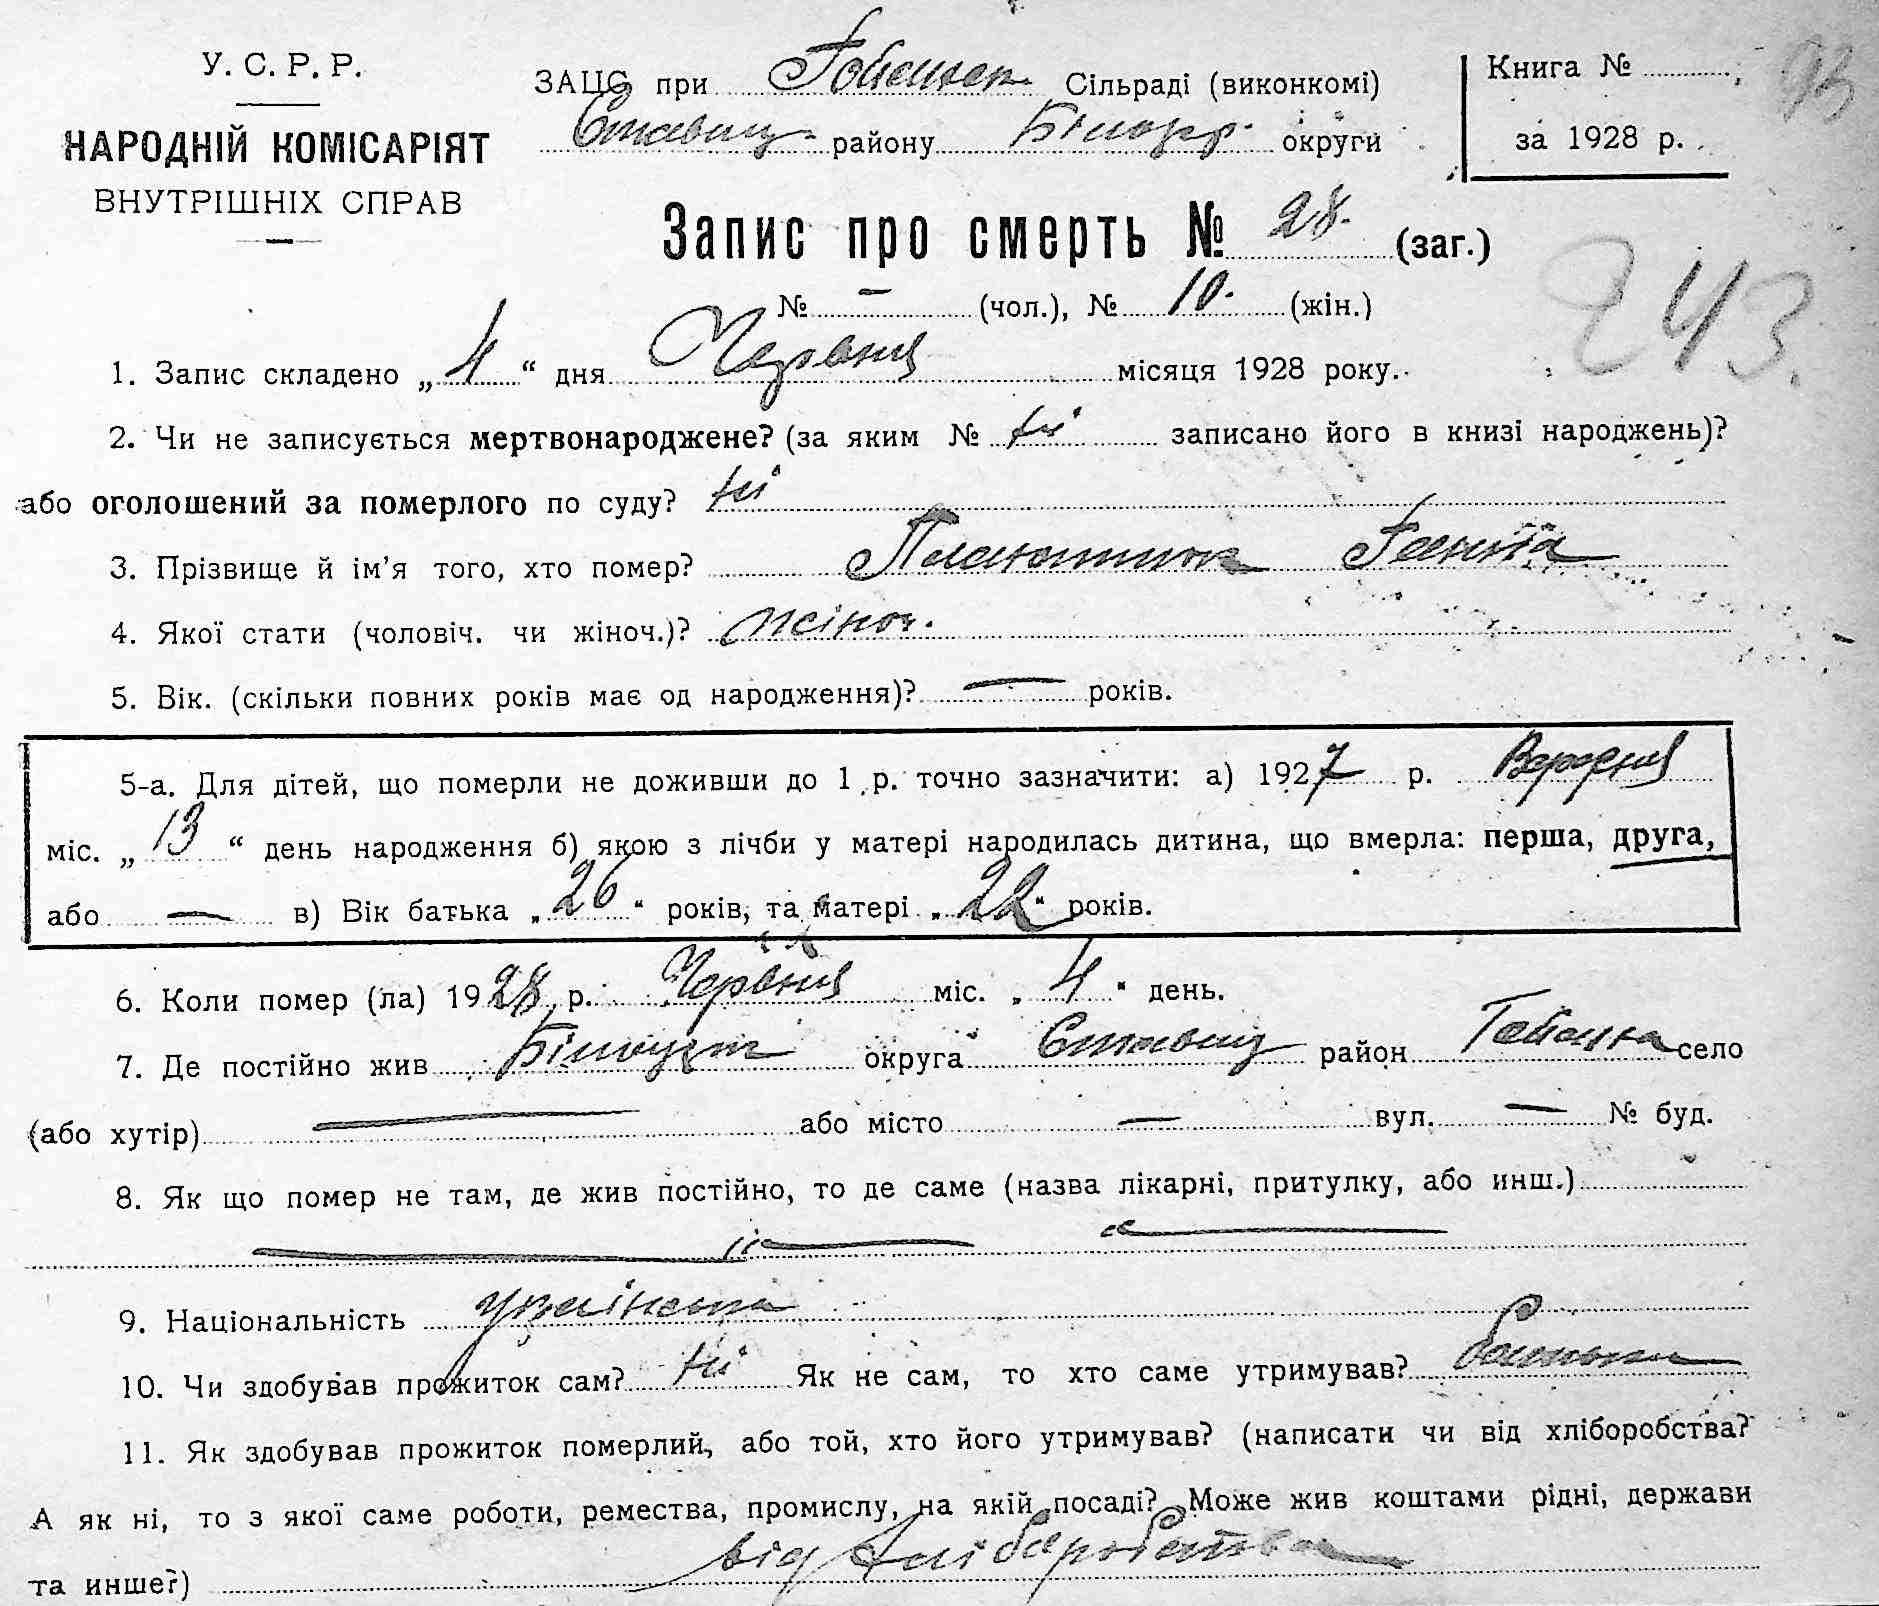 У. С. Р. Р.
НАРОДНІЙ КОМІСАРІЯТ
ВНУТРІШНІХ СПРАВ
ЗАЦС при Гейсиськ Сільраді (виконкомі)
Ставищ. району Білоцер. округи
Книга №
за 1928 р.
93
Запис про смерть № 28. (заг.)
№ — (чол.), № 10. (жін.)
243.
1. Запис складено „ 4 “ дня Червня місяця 1928 року.
2. Чи не записується мертвонароджене? (за яким № ні записано його в книзі народжень)?
або оголошений за померлого по суду? ні
3. Прізвище й ім'я того, хто помер? Ганна
4. Якої стати (чоловіч. чи жіноч.)? жіноч.
5. Вік. (скільки повних років має од народження)? — років.
5-а. Для дітей, що померли не доживши до 1 р. точно зазначити: а) 1927 р. Вересня
міс. „ 13 “ день народження б) якою з лічби у матері народилась дитина, що вмерла: перша, друга,
або — в) Вік батька „ 26 “ років, та матері „ 22 “ років.
6. Коли помер (ла) 1928 р. Червня міс. „ 4 “ день.
7. Де постійно жив округа Ставищ район село
(або хутір) — або місто — вул. — № буд.
8. Як що помер не там, де жив постійно, то де саме (назва лікарні, притулку, або инш.)
9. Національність українська
10. Чи здобував прожиток сам? ні Як не сам, то хто саме утримував? батьки
11. Як здобував прожиток померлий, або той, хто його утримував? (написати чи від хліборобства?
А як ні, то з якої саме роботи, ремества, промислу, на якій посаді? Може жив коштами рідні, держави
та инше?) від хліборобства